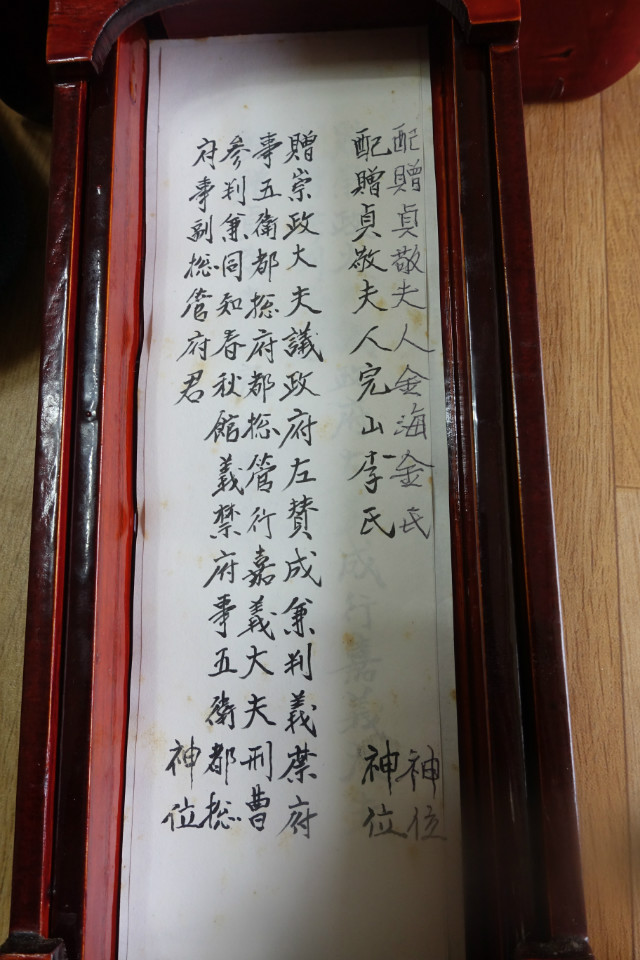 配贈貞敬夫人金海金氏 神位
配贈貞敬夫人完山李氏 神位
贈崇政大夫議政府左賛成兼判義禁府
事五衛都捴府都捴管行嘉義大夫刑曹
參判兼同知春秋館義禁府事五衛都捴
府事副捴管府君 神位